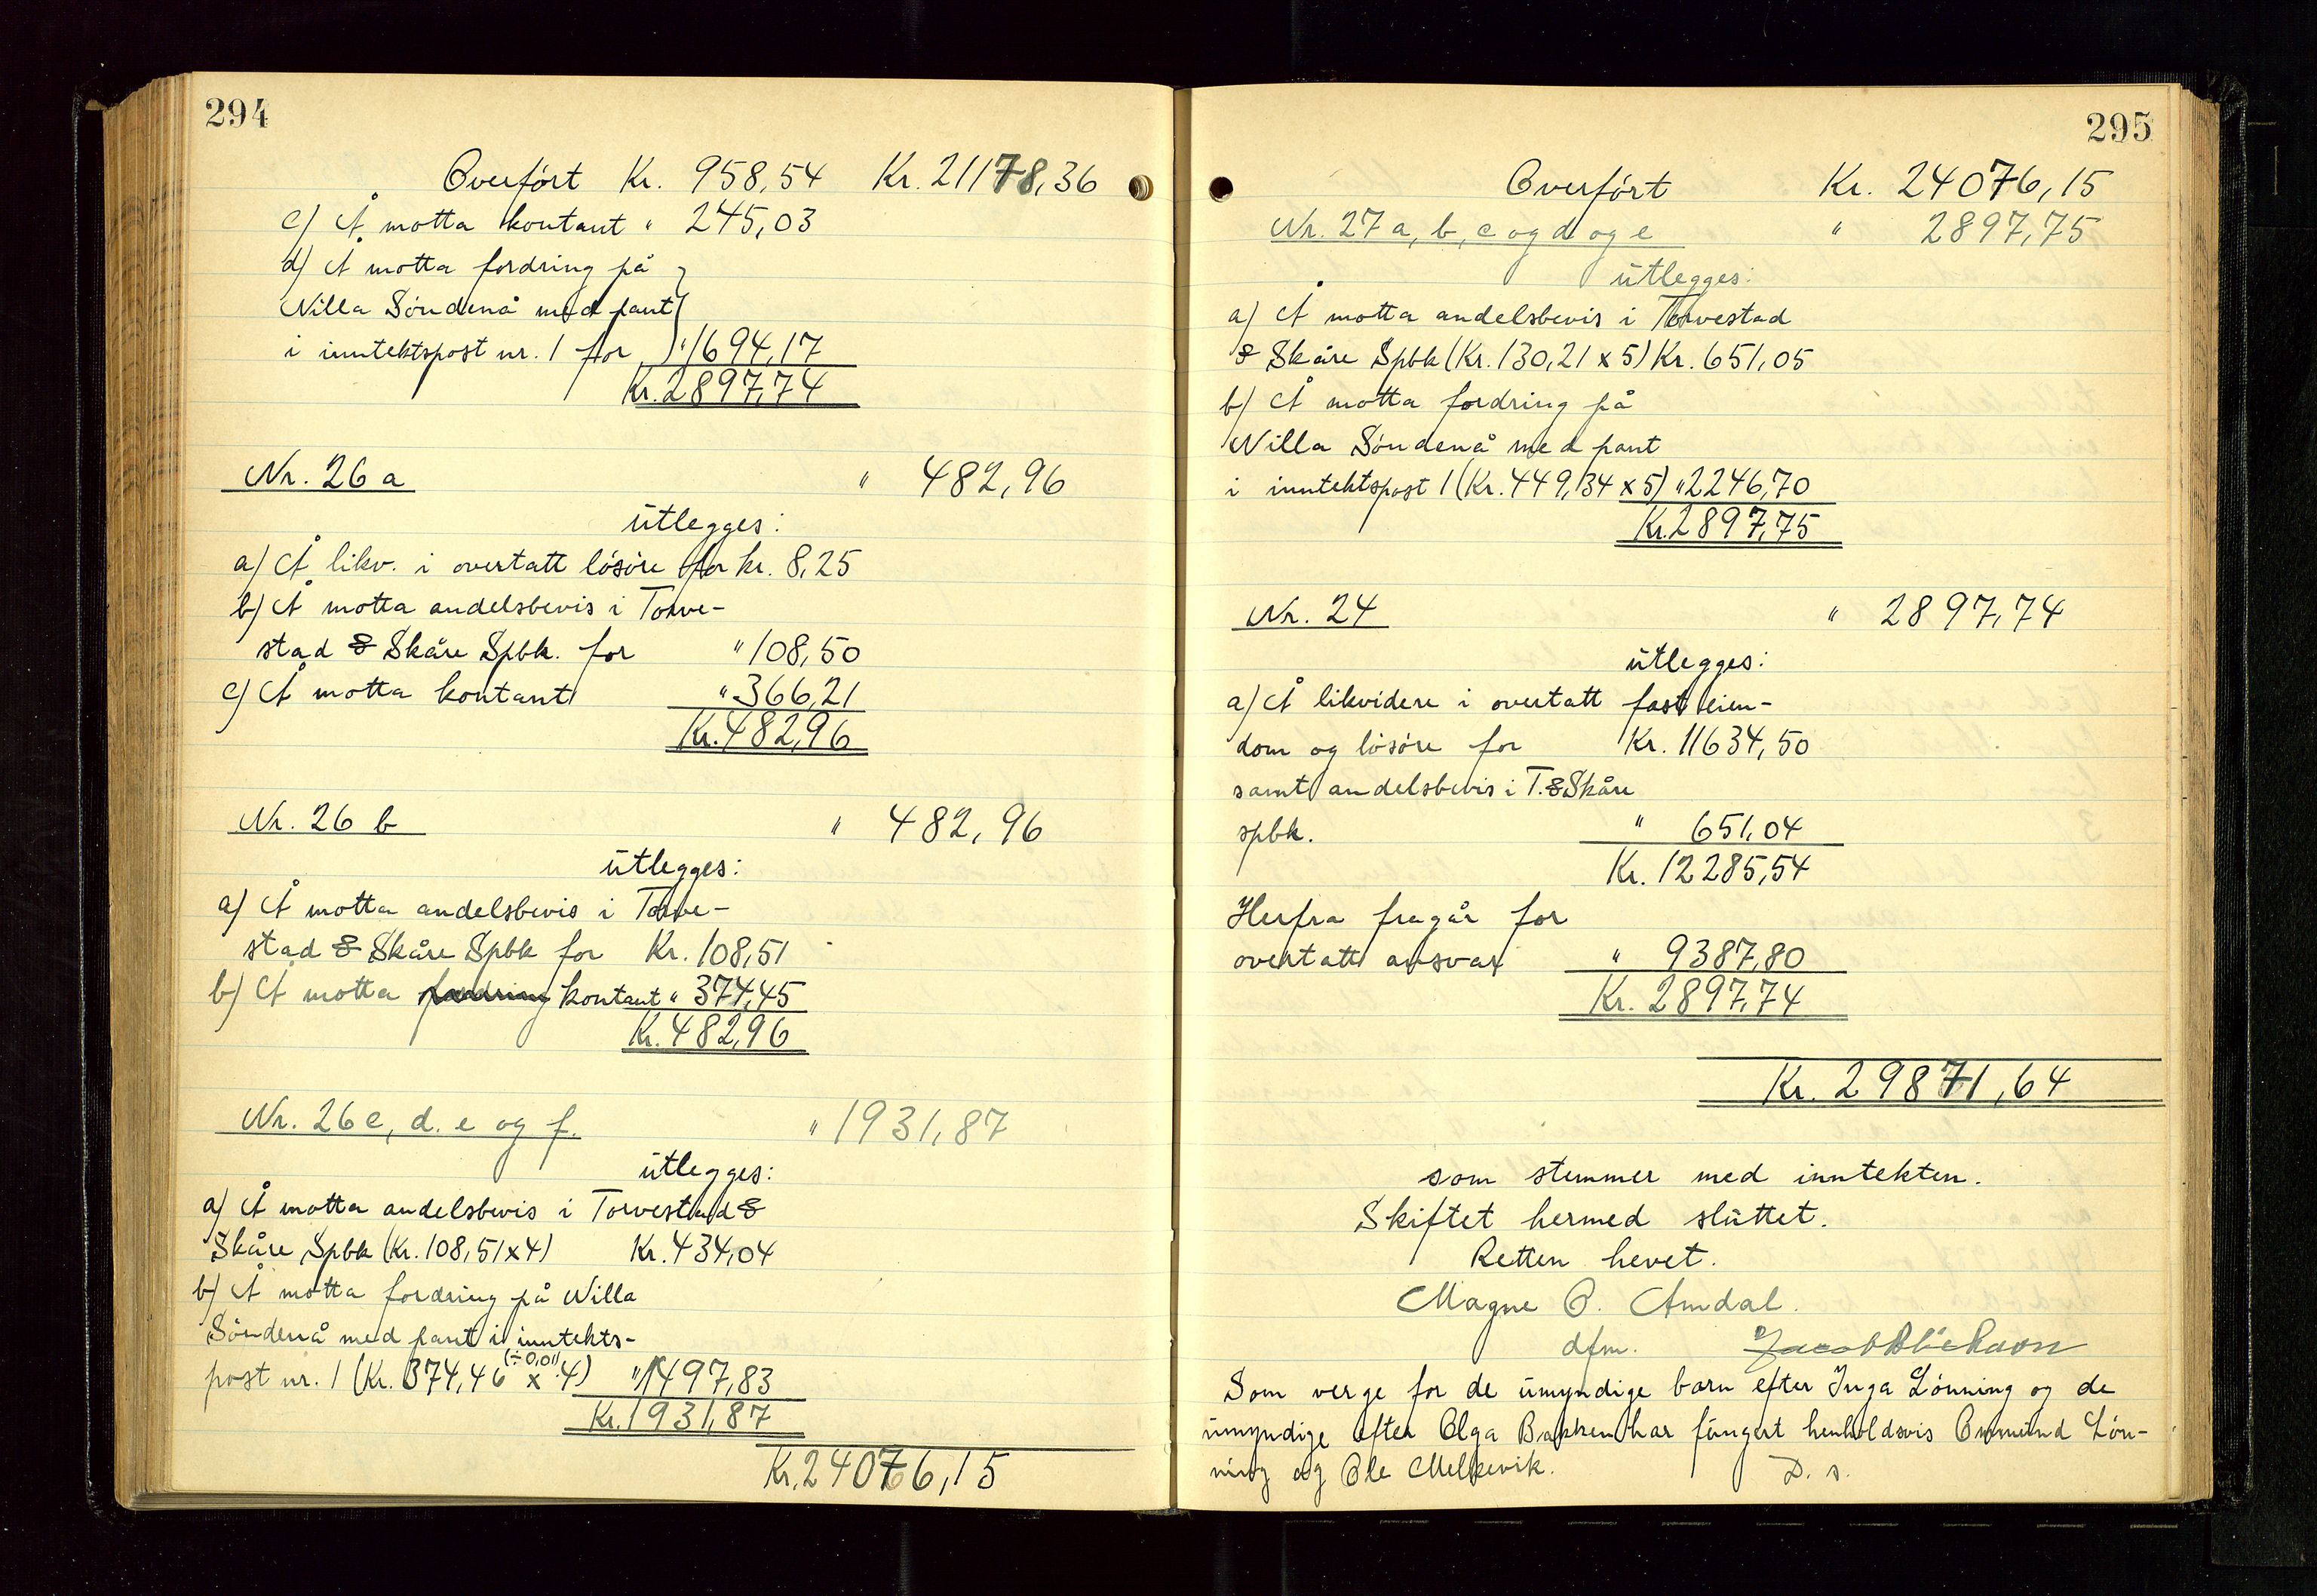 294
Overført Kr. 958,54 Kr. 21178,36
c) Å motta kontant " 245,03
d) Å motta fordring på
Villa Søndenå med pant
i inntektspost nr. 1 for " 1694,17
Kr. 2897,74
Nr. 26 a " 482,96
utlegges:
a) Å likv. i overtatt løsøre for kr. 8,25
b) Å motta andelsbevis i Torve-
stad & Skåre Spbk. for " 108,50
c) Å motta kontant " 366,21
Kr. 482,96
Nr. 26 b " 482,96
utlegges:
a) Å motta andelsbevis i Torve-
stad & Skåre Spbk for Kr. 108,51
b) Å motta fordring kontant " 374,45
Kr. 482,96
Nr. 26 c, d. e og f. " 1931,87
utlegges:
a) Å motta andelsbevis i Torvestad &
Skåre Spbk (Kr. 108,51 x 4) Kr. 434,04
b) Å motta fordring på Villa
Søndenå med pant i inntekts-
post nr. 1 (Kr. 374,46 (÷0,01) x 4) " 1497,83
Kr. 1931,87
Kr. 24076,15
295
Overført Kr. 24076,15
Nr. 27 a, b, c og d og e " 2897,75
utlegges:
a) Å motta andelsbevis i Torvestad
& Skåre Spbk (Kr. 130,21 x 5) Kr. 651,05
b) Å motta fordring på
Villa Søndenå med pant
i inntektspost 1 (Kr. 449,34 x 5) " 2246,70
Kr. 2897,75
Nr. 24 " 2897,74
utlegges:
a) Å likvidere i overtatt fast eien-
dom og løsøre for Kr. 11634,50
samt andelsbevis i T. & Skåre
spbk. " 651,04
Kr. 12285,54
Herfra fragår for
overtatt ansvar " 9387,80
Kr. 2897,74
Kr. 29871,64
som stemmer med inntekten.
Skiftet hermed sluttet.
Retten hevet.
Magne O. Amdal.
dfm.
Som verge for de umyndige barn efter Inga Lønning og de
umyndige efter Olga Bakken har fungert henholdsvis Ommund Løn-
ning og Ole Melkevik. D. s.